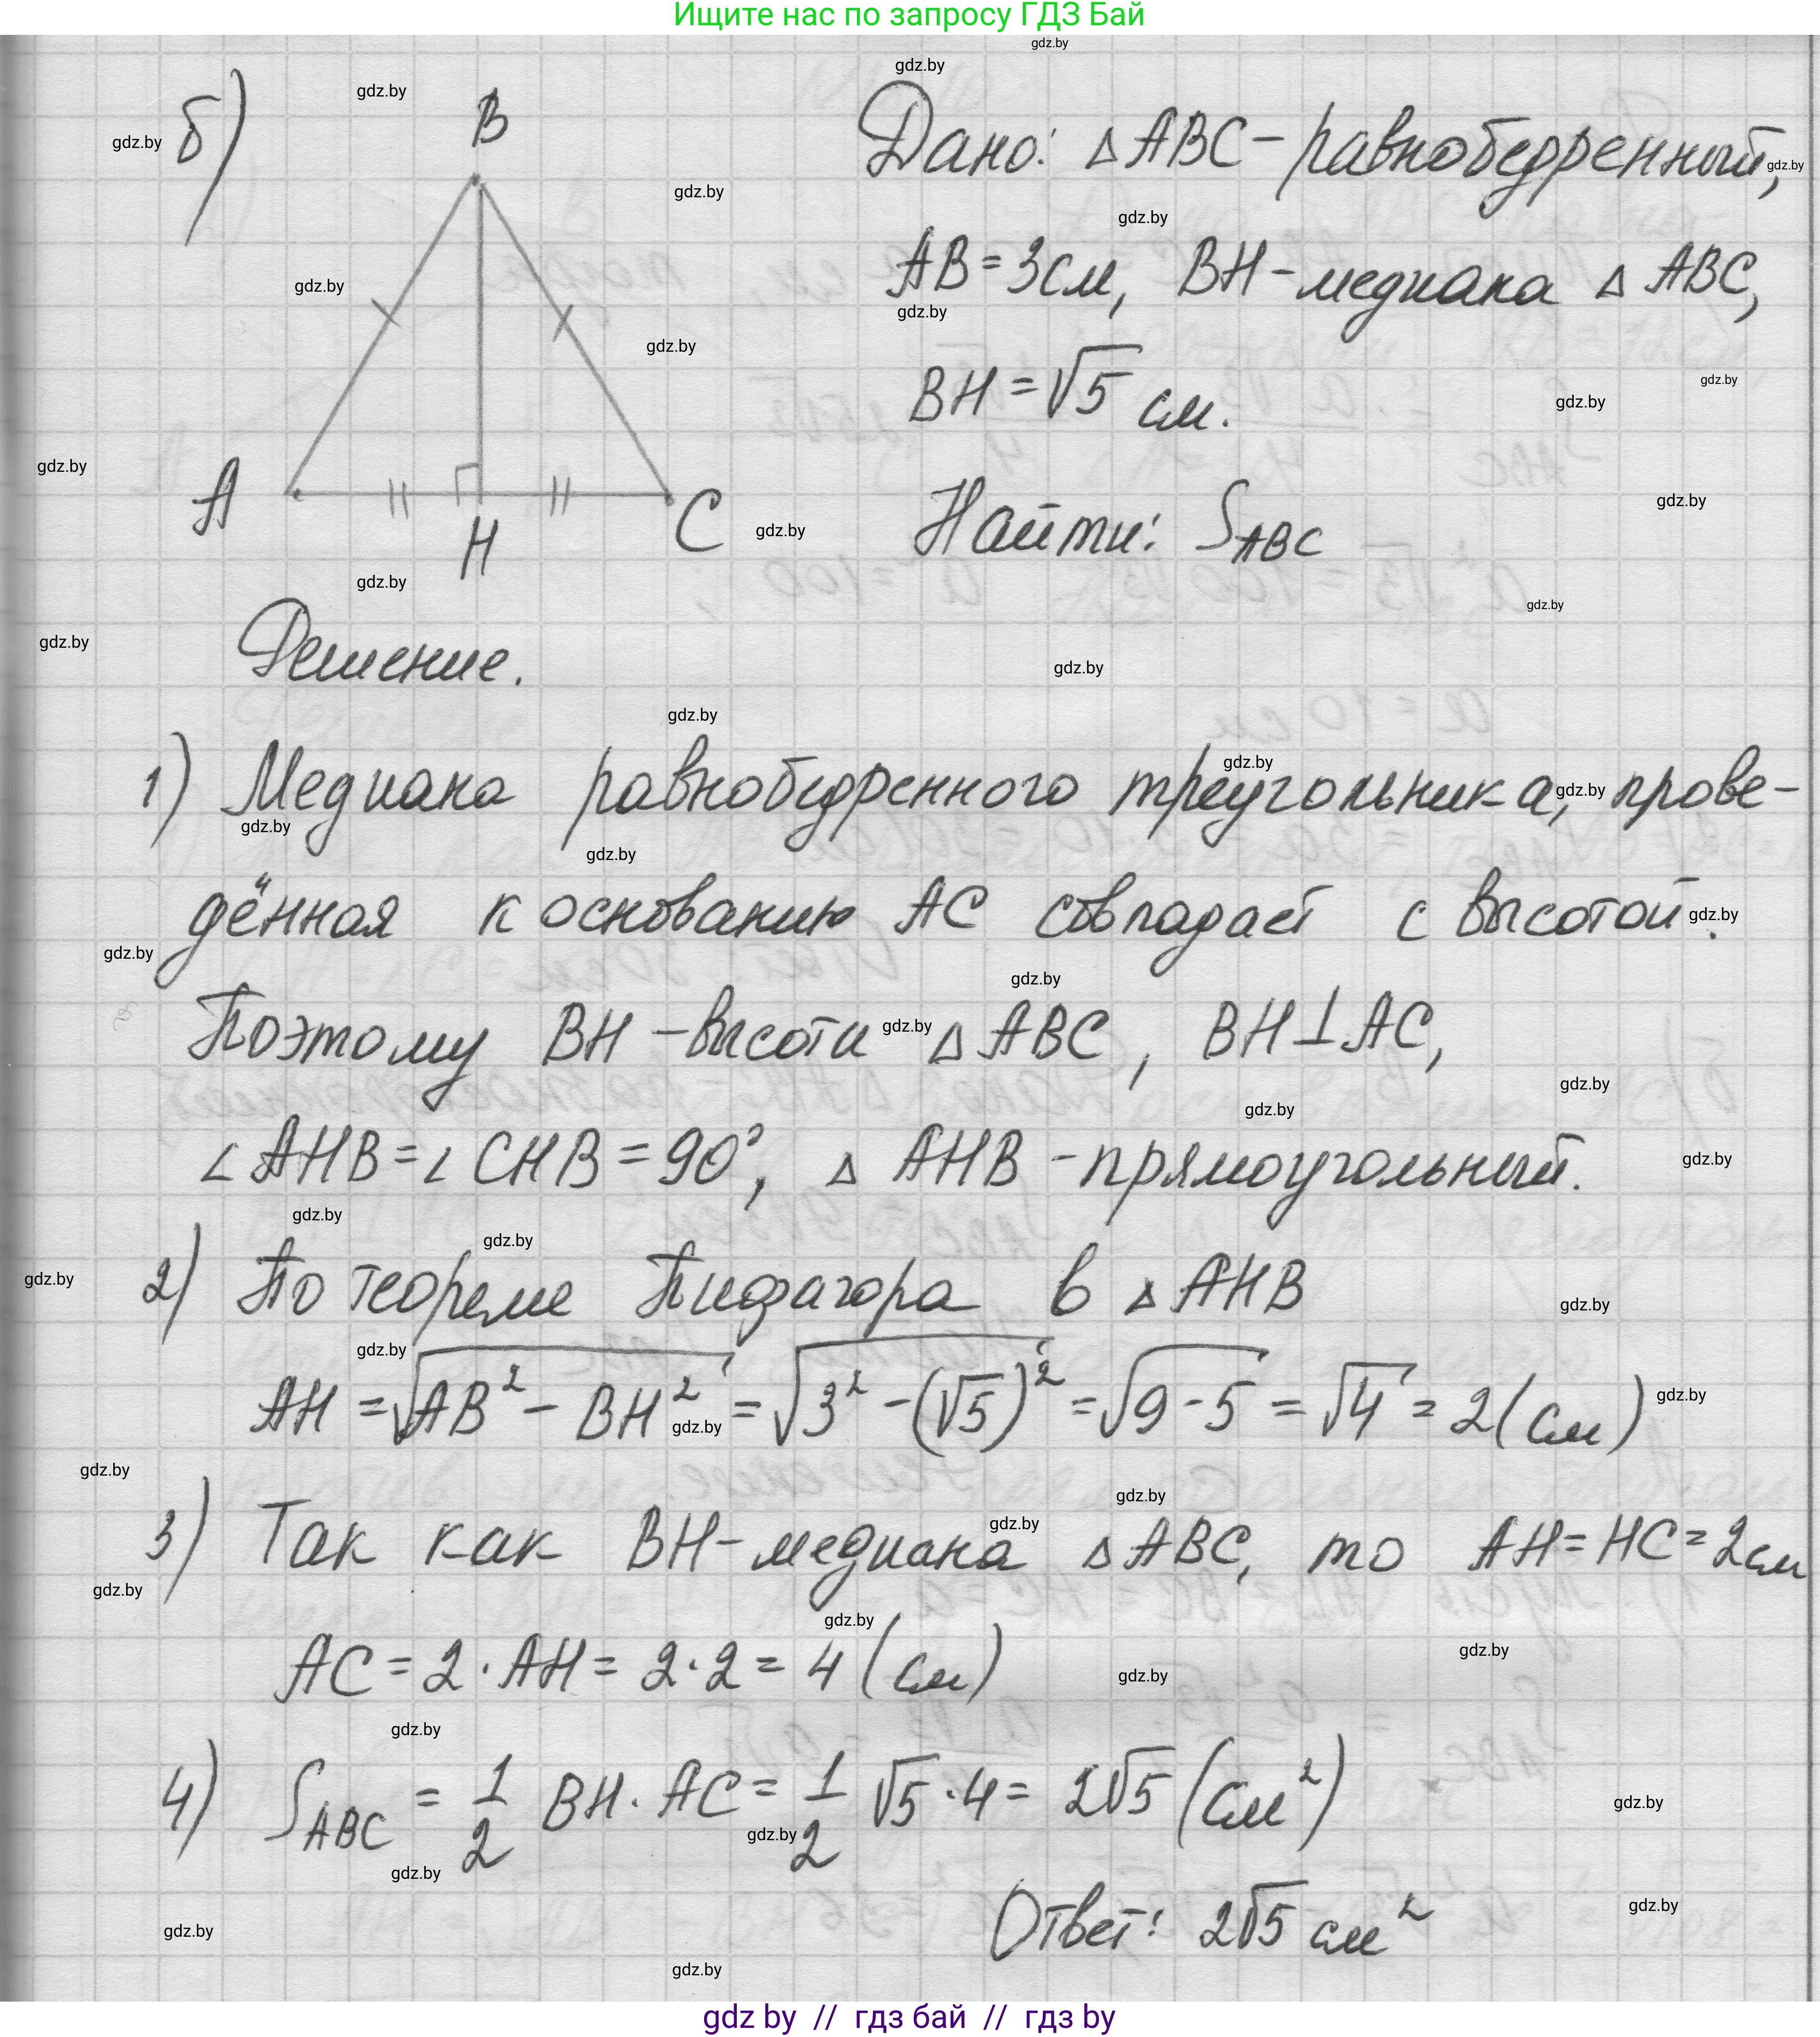 Ищите нас по запросу ГДЗ Бай
б)
B
A
H
C
Дано: △ABC - равнобедренный,
AB = 3см, BH - медиана △ABC,
BH = √5 см.
Найти: S_ABC
Решение.
1) Медиана равнобедренного треугольника, прове-
дённая к основанию AC совпадает с высотой.
Поэтому BH - высота △ABC, BH⊥AC,
∠AHB = ∠CHB = 90°, △AHB - прямоугольный.
2) По теореме Пифагора в △AHB
AH = √(AB² - BH²) = √(3² - (√5)²) = √(9 - 5) = √4 = 2 (см)
3) Так как BH - медиана △ABC, то AH = HC = 2см
AC = 2 · AH = 2 · 2 = 4 (см)
4) S_ABC = 1/2 BH · AC = 1/2 √5 · 4 = 2√5 (см²)
Ответ: 2√5 см²
gdz by // гдз бай // гдз by